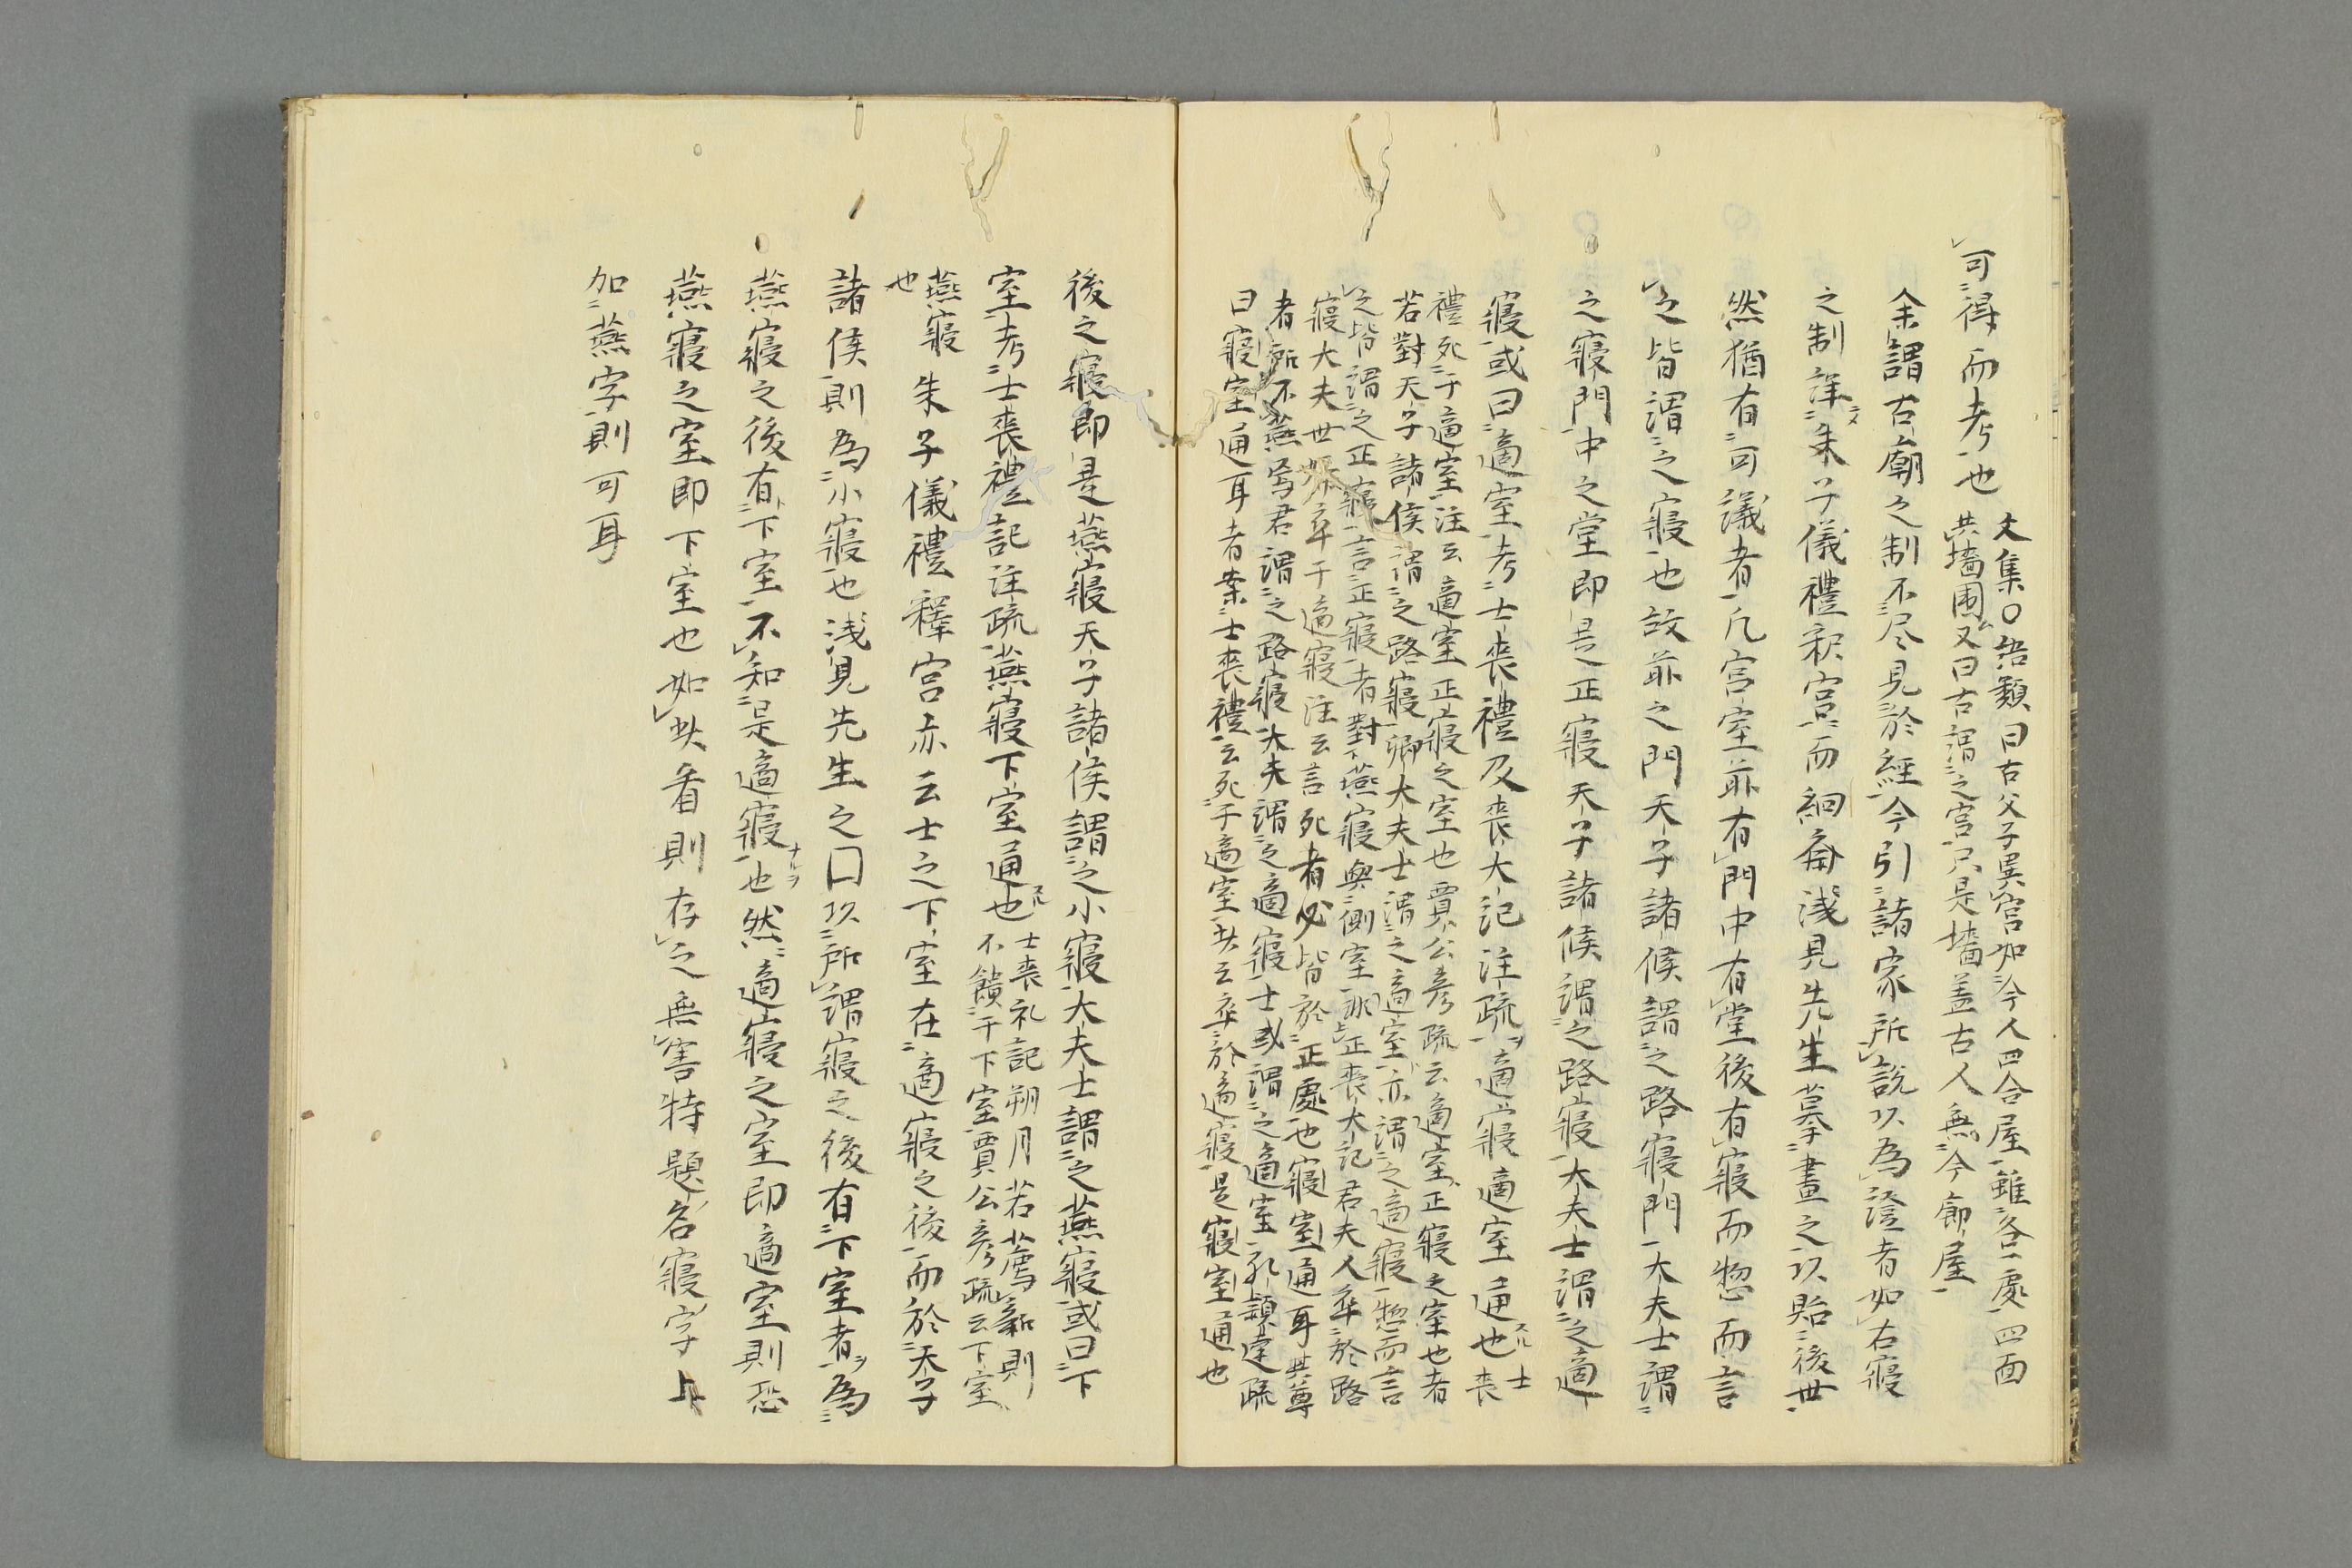 可得而考也
文集○語類曰古父子異宮如今人四合屋雖各一處四面
共墻圍又曰古謂之宮只是墻盖古人無今廊屋
余謂古廟之制不尽見於經今引諸家所說以為證者如右寢
之制詳朱子儀禮釈宮而絅斎浅見先生摹畫之以貽後世
然猶有可議者凡宮室前有門中有堂後有寢而惣而言
之皆謂之寢也故前之門天子諸侯謂之路寢門大夫士謂
之寢門中之堂即是正寢天子諸侯謂之路寢大夫士謂之適
寢或曰適室考士喪禮及喪大記注疏適寢適室通也
士喪
禮死于適室注云適室正寢之室也賈公彦疏云適室正寢之室也者
若對天子諸侯謂之路寢卿大夫士謂之適室亦謂之適寢惣而言
之皆謂之正寢言正寢者對燕寢與側室非正喪大記君夫人卒於路
寢大夫世婦卒于適寢注云言死者必皆於正處也寢室通耳其尊
者所不燕焉君謂之路寢大夫謂之適寢士或謂之適室孔頴達疏
曰寢室通耳者案士喪禮云死于適室此云卒於適寢是寢室通也
後之寢即是燕寢天子諸侯謂之小寢大夫士謂之燕寢或曰下
室考士喪禮記注疏燕寢下室通也
士喪礼記朔月若薦新則
不饋于下室賈公彦疏云下室
燕寢
也
朱子儀禮釋宮亦云士之下室在適寢之後而於天子
諸侯則為小寢也浅見先生之図以所謂寢之後有下室者為
燕寢之後有下室不知是適寢也然適寢之室即適室則恐
燕寢之室即下室也如此看則存之無害特題名寢字上
加燕字則可耳